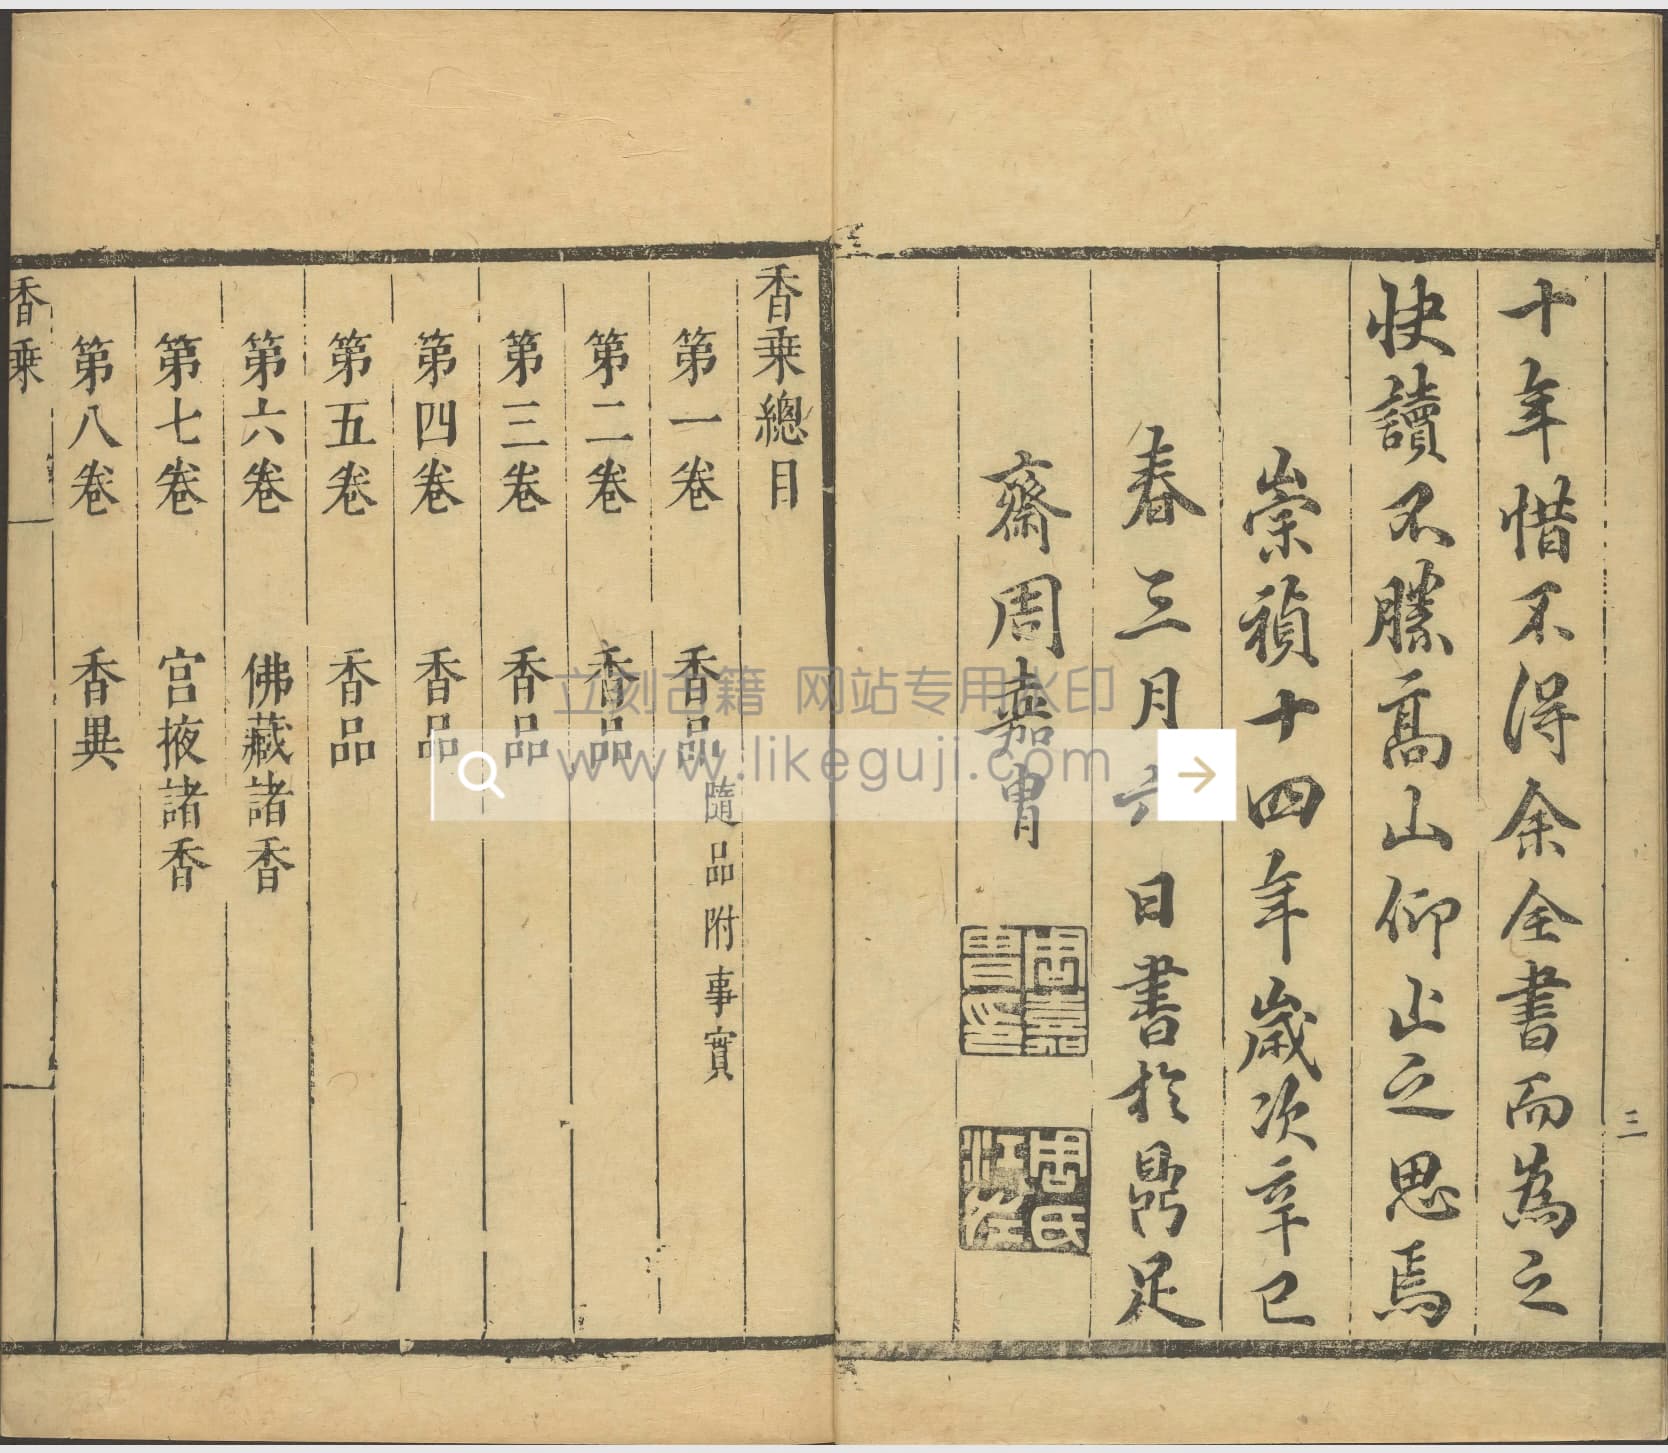 三
十年惜不得余全書而為之
快讀不勝高山仰止之思焉
崇禎十四年歲次辛巳
春三月六日書於鼎足
齋周嘉胄
周嘉胄印
周氏江左
香乗總目
第一卷 香品 隨品附事實
第二卷 香品
第三卷 香品
第四卷 香品
第五卷 香品
第六卷 佛藏諸香
第七卷 宮掖諸香
第八卷 香異
香乗
立刻古籍 网站专用水印
www.likeguji.com